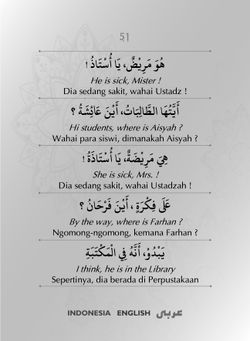 51
هُوَ مَرِيْضٌ، يَا أُسْتَاذُ !
He is sick, Mister !
Dia sedang sakit, wahai Ustadz !
أَيَّتُهَا الطَّالِبَاتُ، أَيْنَ عَائِشَةُ ؟
Hi students, where is Aisyah ?
Wahai para siswi, dimanakah Aisyah ?
هِيَ مَرِيْضَةٌ، يَا أُسْتَاذَةُ !
She is sick, Mrs. !
Dia sedang sakit, wahai Ustadzah !
عَلَى فِكْرَةٍ ، أَيْنَ فَرْحَانُ ؟
By the way, where is Farhan ?
Ngomong-ngomong, kemana Farhan ?
يَبْدُوْ، أَنَّهُ فِي الْمَكْتَبَةِ
I think, he is in the Library
Sepertinya, dia berada di Perpustakaan
INDONESIA ENGLISH عربي